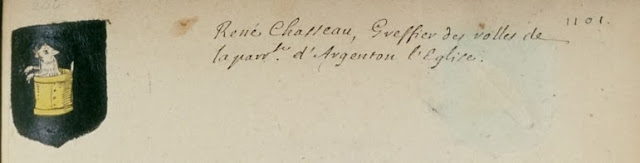 René Chasseau, Greffier des rolles de 1101.
la parr.sse d'Argenton l'Eglise.